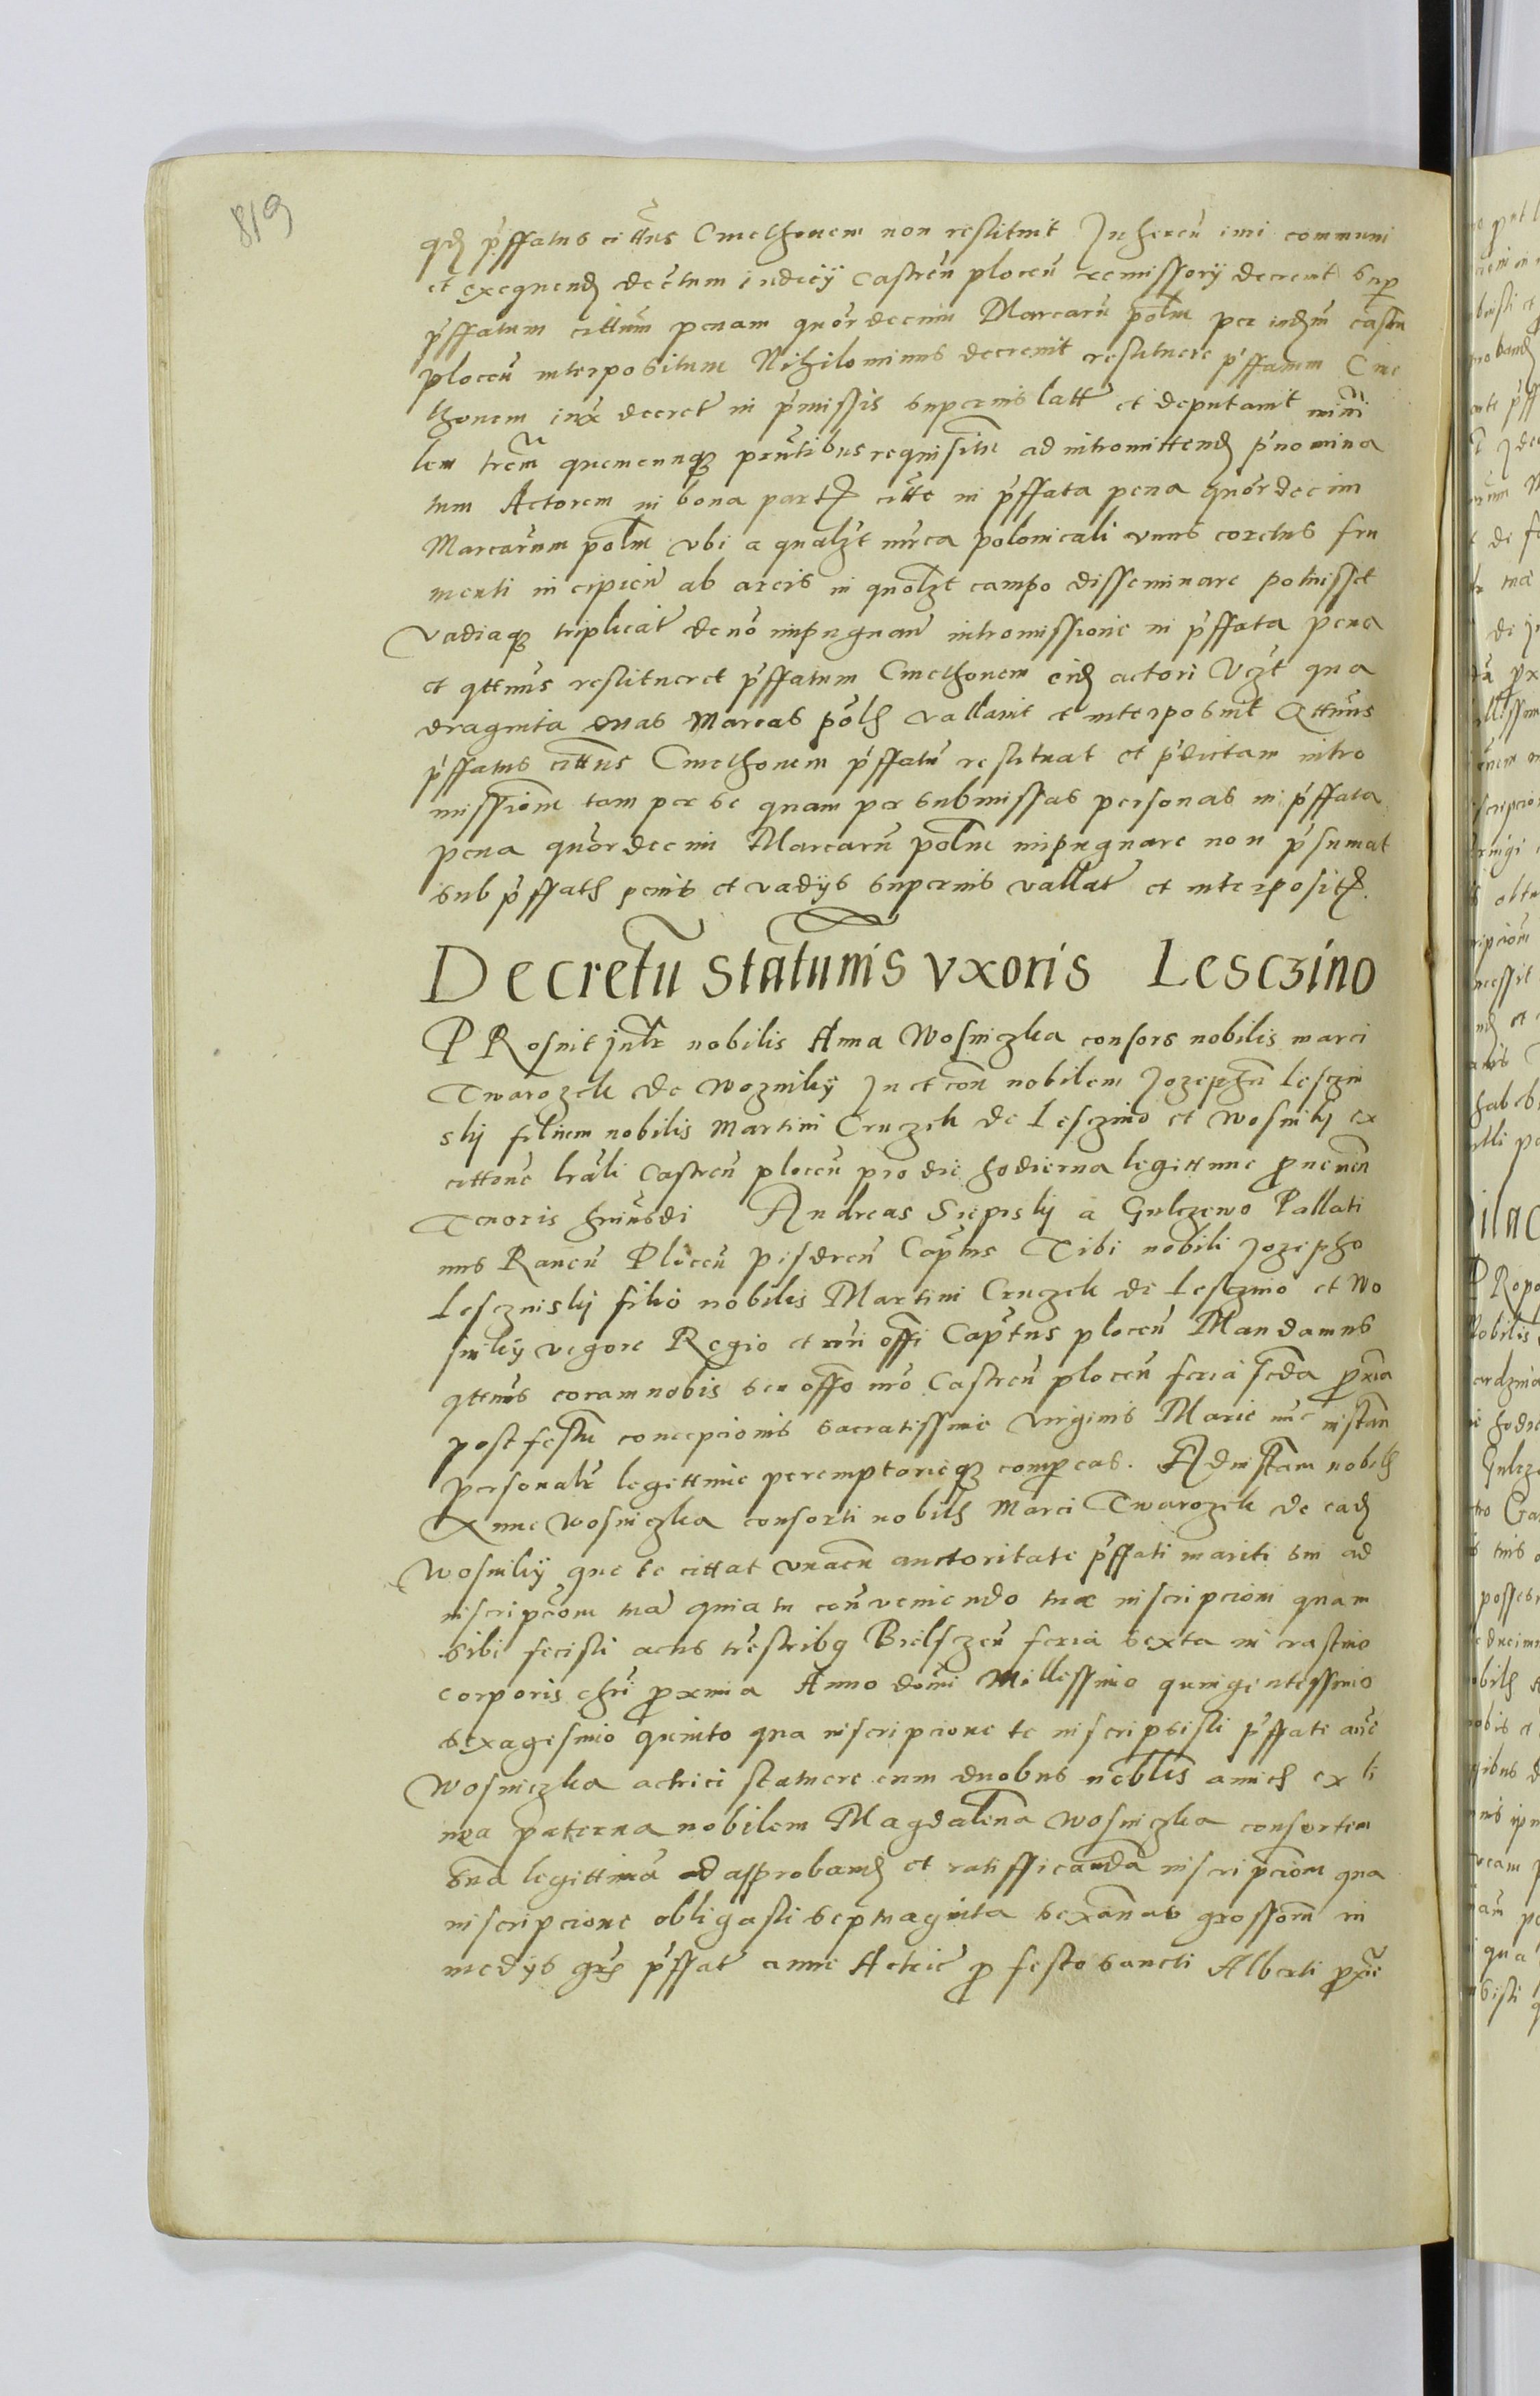 819
qd p'ffatus citt'us Cmethonem non restituit Inheren' iuri communi
et exequend decretum iudicy Castren' plocen' remissory decrevit sup
p'ffatum cittum penam quordecim Marcaru' polm per iudm castn
plocen' interpositum Nihilominus decrevit restituere p'ffatum Cme
thonem iux decret in p'missis supernis latt et deputavit mini
lem trem quemcunq prntibus requisitu ad intromittend p'nomina
tum Actorem in bona part citte in p'ffata pena quordecim
Marcarum polm ubi a qualzt mrca polonicali unus coretus fru
menti incipien' ab areis in quolzt campo disseminare potuisset
vadiaq triplicat de no impugnan' intromissione in p'ffata pena
et qttnus restitueret p'ffatum Cmethonem eid actori Vzt qua
draginta duas Marcas pol vallavit et interposuit Qttnus
p'ffatus cittus Cmethonem p'ffatu' restituat et p'dictam intro
missionem tam per se quam per submissas personas in p'ffata
pena quordecim Marcaru' polm impugnare non p'sumat
sub p'ffat penis et vadys supernis vallat et interposit.
Decretu statuinis vxoris Lesczino
PRosuit jnlr nobilis Anna Wosniczka consors nobilis marci
Twarozek de wozniky In et con nobilem Jozephu' Lesczin
sky filium nobilis Martini Cruzek de Lesczino et Wosniky ex
cittone lrali Castren' plocen' pro die hodierna legittime provenien
Tenoris huiusdi Andreas Siepisky a Gulczewo Pallati
nus Raven' Plocen' pisdren' Captus Tibi nobili Jozepho
Lesczinisky filio nobilis Martini Cruzek de Lesczino et Wo
sniky vigore Regio et nri offi Captus plocen' Mandamus
qtenus coram nobis seu offo nro Castren' plocen' feria scda proxia
post festu concepcionis sacratissime virginis Marie nuc instan
personalr legittime peremptorieq compeas. Ad instam nobil
Anne Wosniczka consorti nobil Marci Twarozek de ead
Wosniky que te cittat vnacu auctoritate p'ffati mariti sui ad
inscripcom tua quia tu con'veniendo tue inscripcioni quam
sibi fecisti actis trestribq Bielscen' feria sexta in crastino
corporis chri proxima Anno domi Millessimo quingentessimo
sexagesimo quinto qua inscripcione te inscripsisti p'ffate ane
Wosniczka actrici statuere cum duobus noblis amic ex li
nea paterna nobilem Magdalena Wosniczka consortem
sua legittima ad approband et ratifficanda inscripciom qua
inscripcione obligasti septuaginta sexanas grossom in
medys grs p'ffat anne Actric pro festo sancti Alberti proxie